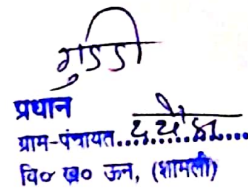 गुड्डी
प्रधान
ग्राम-पंचायत..........
वि० ख० ऊन, (शामली)